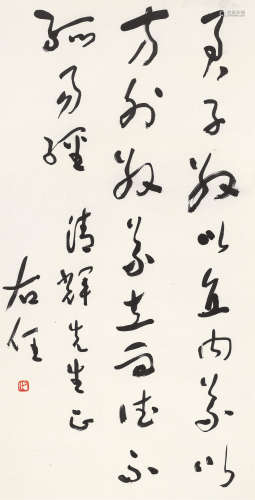 君子敬以直内義以
方外敬義立而德不
孤易經
清輝先生正
右任